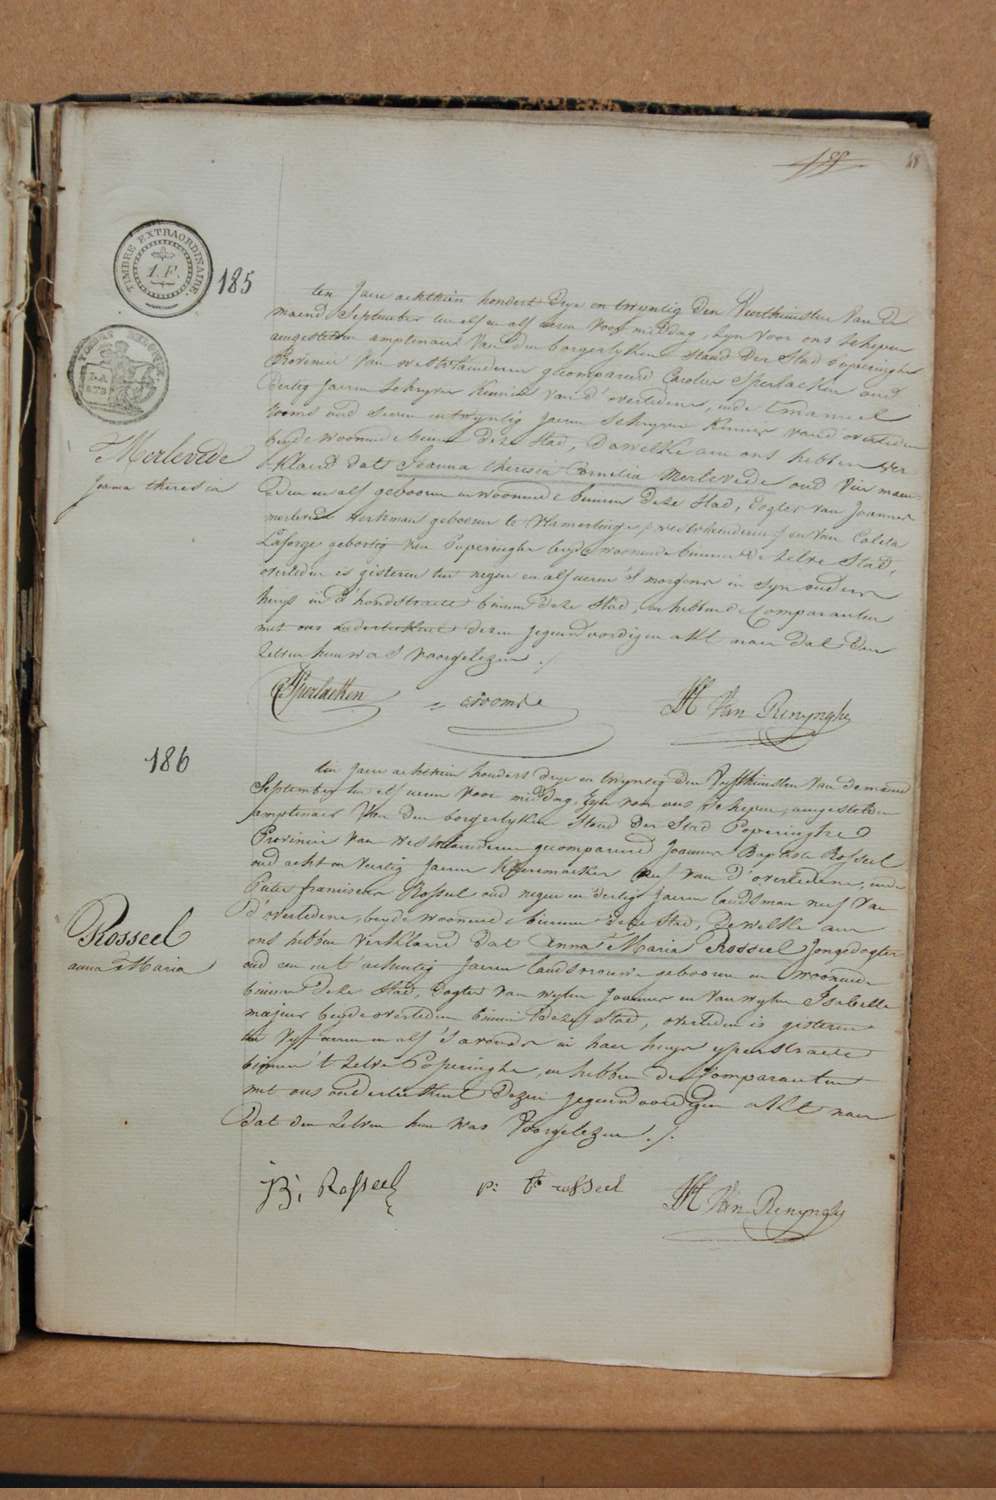 48
TIMBRE EXTRAORDINAIRE.
1. F.
185
ten Jaere achthien hondert drye en twyntig den Veerthiensten van de
maend September ten elf en alf uren voor middag, zyn voor ons schepen
aengestelden amptenaer van den borgerlyken Stand der Stad Poperinghe
Provincie van westvlaenderen gecompareerd Carolus Sperlaeken oud
dertig Jaeren schryver kennis van d'overledene, ende Emanuel
Cooms oud seven en twyntig Jaeren schryver kennis van d'overledene
beyde woonende binnen deze Stad, Dewelke aen ons hebben ver
klaerd dat Joanna theresia Cornelia Merlevede oud vier maen
eden en alf gebooren en woonende binnen deze Stad, Dogter van Joannes
merlevede werkman gebooren te Vlamertinge (westvlaenderen) en van Coleta
Laforge geboortig van Poperinghe beyde woonende binnen de zelve Stad,
overleden is gisteren ten negen en alf uren 's morgens in zyn ouders
huys in d'hondstraete binnen deze Stad, en hebben de Comparanten
met ons onderteekent dezen jegenwoordigen akt naer dat den
zelven hun was voorgelezen ./
Merlevede
Joanna theresia
CSperlaeken
E Cooms
JH Van Renynghe
186
ten Jaere achthien hondert drye en twyntig den Vyfthiensten van de maend
September ten elf uren voor middag, zyn voor ons schepen, aengestelden
amptenaer van den borgerlyken Stand der Stad Poperinghe
Provincie van westvlaenderen gecompareerd Joannes Baptiste Rosseel
oud acht en veertig Jaeren
van d'overledene, ende
Pieter franciscus Rosseel oud negen en dertig Jaeren landsman neef van
d'overledene, beyde woonende binnen deze Stad, Dewelke aen
ons hebben verklaerd dat Anna Maria Rosseel Jongedogter
oud een en t'achentig Jaeren landsvrouwe gebooren en woonende
binnen deze Stad, Dogter van wylen Joannes en van wylen Isabelle
majeur beyde overleden binnen deze Stad, overleden is gisteren
ten vyf uren en alf 's avonds in haer huys yperstraete
binnen 't zelve Poperinghe, en hebben de Comparanten
met ons onderteekent dezen jegenwoordigen akt naer
dat den zelven hun was Voorgelezen ./.
Rosseel
anna Maria
JB, Rosseel
p: f rosseel
JH Van Renynghe